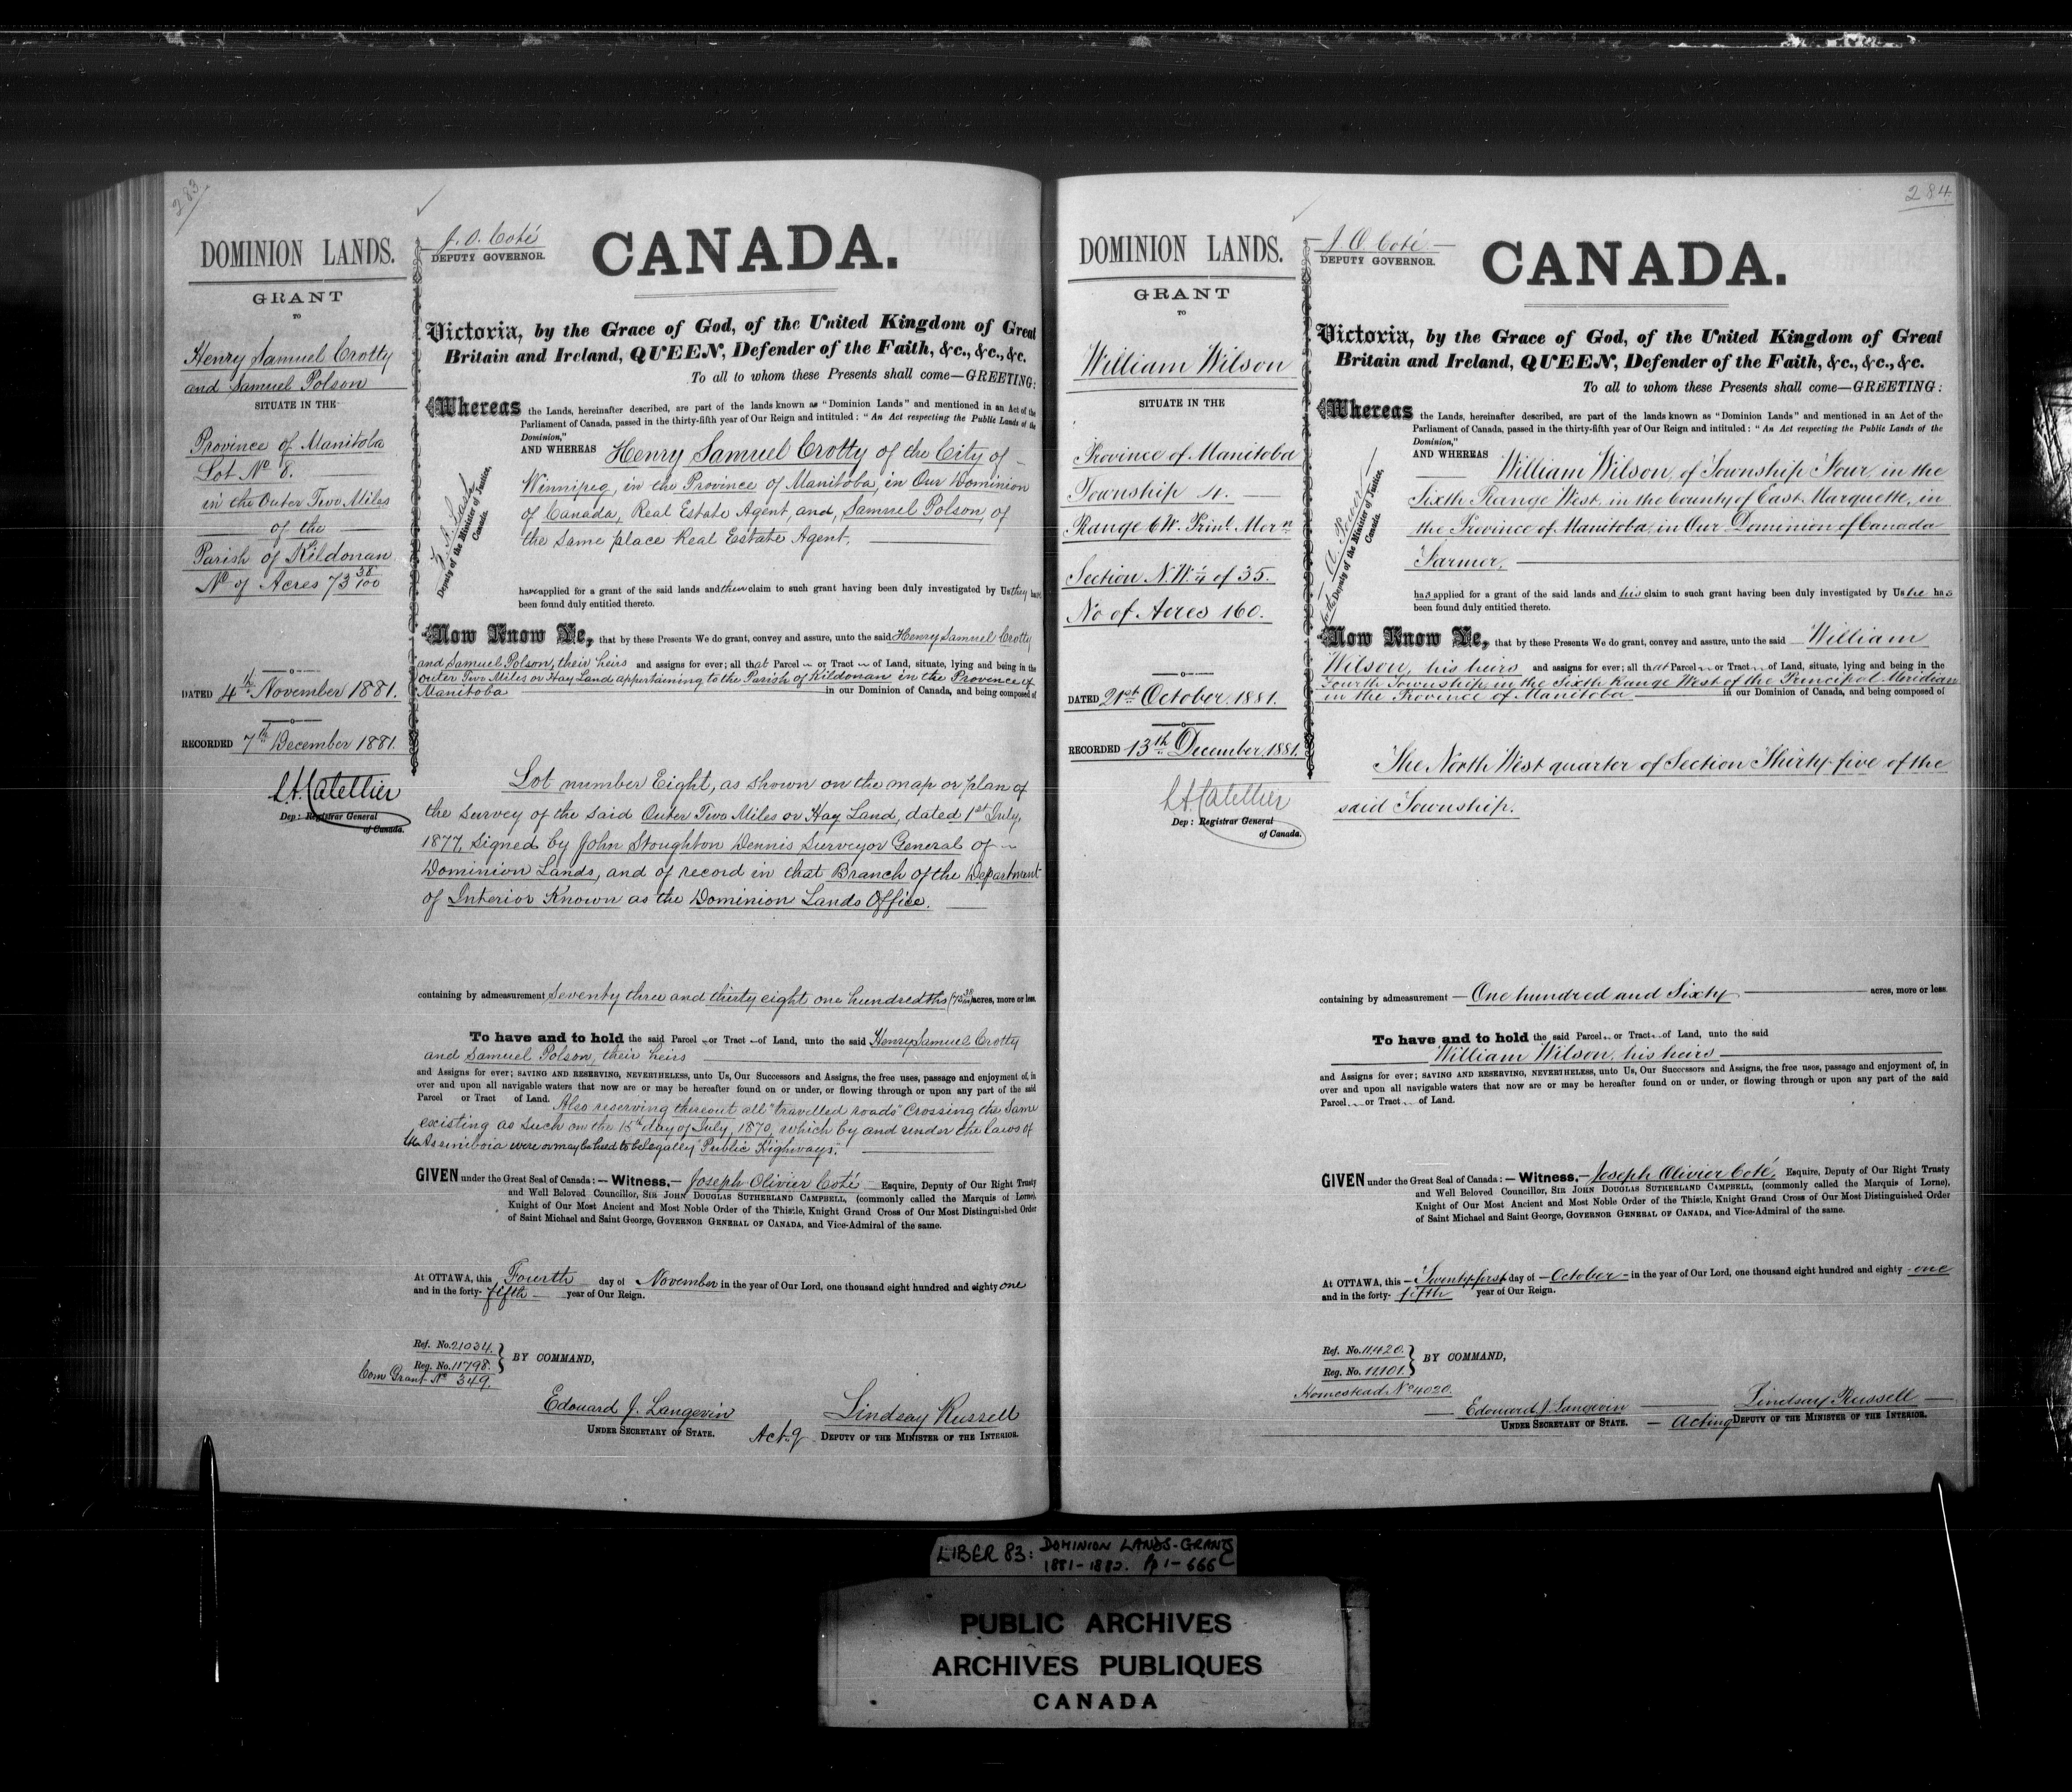 283
DOMINION LANDS.
GRANT
TO
Henry Samuel Crotty
and Samuel Polson
SITUATE IN THE
Province of Manitoba
Lot No 8.
in the Outer Two Miles
of the
Parish of Kildonan
No of Acres 73 38/100
DATED 4th November 1881.
RECORDED 7th December 1881.
L.A. Catellier
Dep: Registrar General
of Canada.
J. O. Coté
DEPUTY GOVERNOR.
CANADA.
Victoria, by the Grace of God, of the United Kingdom of Great
Britain and Ireland, QUEEN, Defender of the Faith, &c., &c., &c.
To all to whom these Presents shall come—GREETING:
Deputy of the Minister of Justice,
Canada.
Whereas the Lands, hereinafter described, are part of the lands known as "Dominion Lands" and mentioned in an Act of the
Parliament of Canada, passed in the thirty-fifth year of Our Reign and intituled: "An Act respecting the Public Lands of the
Dominion,"
AND WHEREAS Henry Samuel Crotty of the City of
Winnipeg, in the Province of Manitoba, in Our Dominion
of Canada, Real Estate Agent, and, Samuel Polson, of
the same place Real Estate Agent,
have applied for a grant of the said lands and their claim to such grant having been duly investigated by Us they have
been found duly entitled thereto.
Now Know Ye, that by these Presents We do grant, convey and assure, unto the said Henry Samuel Crotty
and Samuel Polson, their heirs and assigns for ever; all that Parcel or Tract of Land, situate, lying and being in the
Outer Two Miles or Hay Land appertaining to the Parish of Kildonan in the Province of
Manitoba in our Dominion of Canada, and being composed of
Lot number Eight, as shown on the map or plan of
the survey of the said Outer Two Miles or Hay Land, dated 1st July,
1877, signed by John Stoughton Dennis Surveyor General of
Dominion Lands, and of record in that Branch of the Department
of Interior Known as the Dominion Lands Office.
containing by admeasurement Seventy three and thirty eight one hundredths (73 38/100) acres, more or less.
To have and to hold the said Parcel or Tract of Land, unto the said Henry Samuel Crotty
and Samuel Polson, their heirs
and Assigns for ever; SAVING AND RESERVING, NEVERTHELESS, unto Us, Our Successors and Assigns, the free uses, passage and enjoyment of, in
over and upon all navigable waters that now are or may be hereafter found on or under, or flowing through or upon any part of the said
Parcel or Tract of Land. Also reserving thereout all "travelled roads" Crossing the same
existing as such on the 15th day of July, 1870, which by and under the laws of
the Assiniboia were or may be held to be legally "Public Highways."
GIVEN under the Great Seal of Canada:—Witness,—Joseph Olivier Coté Esquire, Deputy of Our Right Trusty
and Well Beloved Councillor, SIR JOHN DOUGLAS SUTHERLAND CAMPBELL, (commonly called the Marquis of Lorne),
Knight of Our Most Ancient and Most Noble Order of the Thistle, Knight Grand Cross of Our Most Distinguished Order
of Saint Michael and Saint George, GOVERNOR GENERAL OF CANADA, and Vice-Admiral of the same.
At OTTAWA, this Fourth day of November in the year of Our Lord, one thousand eight hundred and eighty one
and in the forty-fifth year of Our Reign.
Ref. No. 21034.
Reg. No. 11798.
Com Grant No 349.
BY COMMAND,
Edouard J. Langevin
UNDER SECRETARY OF STATE.
Lindsay Russell
Act.g DEPUTY OF THE MINISTER OF THE INTERIOR.
284.
DOMINION LANDS.
GRANT
TO
William Wilson
SITUATE IN THE
Province of Manitoba
Township 4.
Range 6 W. Prinl. Mern
Section N.W. 1/4 of 35.
No of Acres 160.
DATED 21st October, 1881.
RECORDED 13th December, 1881.
L.A. Catellier
Dep: Registrar General
of Canada.
J. O. Coté
DEPUTY GOVERNOR.
CANADA.
Victoria, by the Grace of God, of the United Kingdom of Great
Britain and Ireland, QUEEN, Defender of the Faith, &c., &c., &c.
To all to whom these Presents shall come—GREETING:
A. Power
for the Deputy of the Minister of Justice,
Canada.
Whereas the Lands, hereinafter described, are part of the lands known as "Dominion Lands" and mentioned in an Act of the
Parliament of Canada, passed in the thirty-fifth year of Our Reign and intituled: "An Act respecting the Public Lands of the
Dominion,"
AND WHEREAS William Wilson, of Township Four, in the
Sixth Range West, in the County of East Marquette, in
the Province of Manitoba, in Our Dominion of Canada
Farmer,
has applied for a grant of the said lands and his claim to such grant having been duly investigated by Us he has
been found duly entitled thereto.
Now Know Ye, that by these Presents We do grant, convey and assure, unto the said William
Wilson, his heirs and assigns for ever; all that Parcel or Tract of Land, situate, lying and being in the
Fourth Township, in the Sixth Range West of the Principal Meridian
in the Province of Manitoba in our Dominion of Canada, and being composed of
The North West quarter of Section Thirty-five of the
said Township.
containing by admeasurement — One hundred and Sixty acres, more or less.
To have and to hold the said Parcel or Tract of Land, unto the said
William Wilson, his heirs
and Assigns for ever; SAVING AND RESERVING, NEVERTHELESS, unto Us, Our Successors and Assigns, the free uses, passage and enjoyment of, in
over and upon all navigable waters that now are or may be hereafter found on or under, or flowing through or upon any part of the said
Parcel or Tract of Land.
GIVEN under the Great Seal of Canada:—Witness,—Joseph Olivier Coté, Esquire, Deputy of Our Right Trusty
and Well Beloved Councillor, SIR JOHN DOUGLAS SUTHERLAND CAMPBELL, (commonly called the Marquis of Lorne),
Knight of Our Most Ancient and Most Noble Order of the Thistle, Knight Grand Cross of Our Most Distinguished Order
of Saint Michael and Saint George, GOVERNOR GENERAL OF CANADA, and Vice-Admiral of the same.
At OTTAWA, this — Twenty-first day of — October — in the year of Our Lord, one thousand eight hundred and eighty - one
and in the forty- fifth year of Our Reign.
Ref. No. 11420.
Reg. No. 11101.
Homestead No 4020.
BY COMMAND,
Edouard J. Langevin
UNDER SECRETARY OF STATE.
Lindsay Russell
— Acting DEPUTY OF THE MINISTER OF THE INTERIOR.
LIBER 83: DOMINION LANDS-GRANTS
1881-1882. Pp 1-666
PUBLIC ARCHIVES
ARCHIVES PUBLIQUES
CANADA